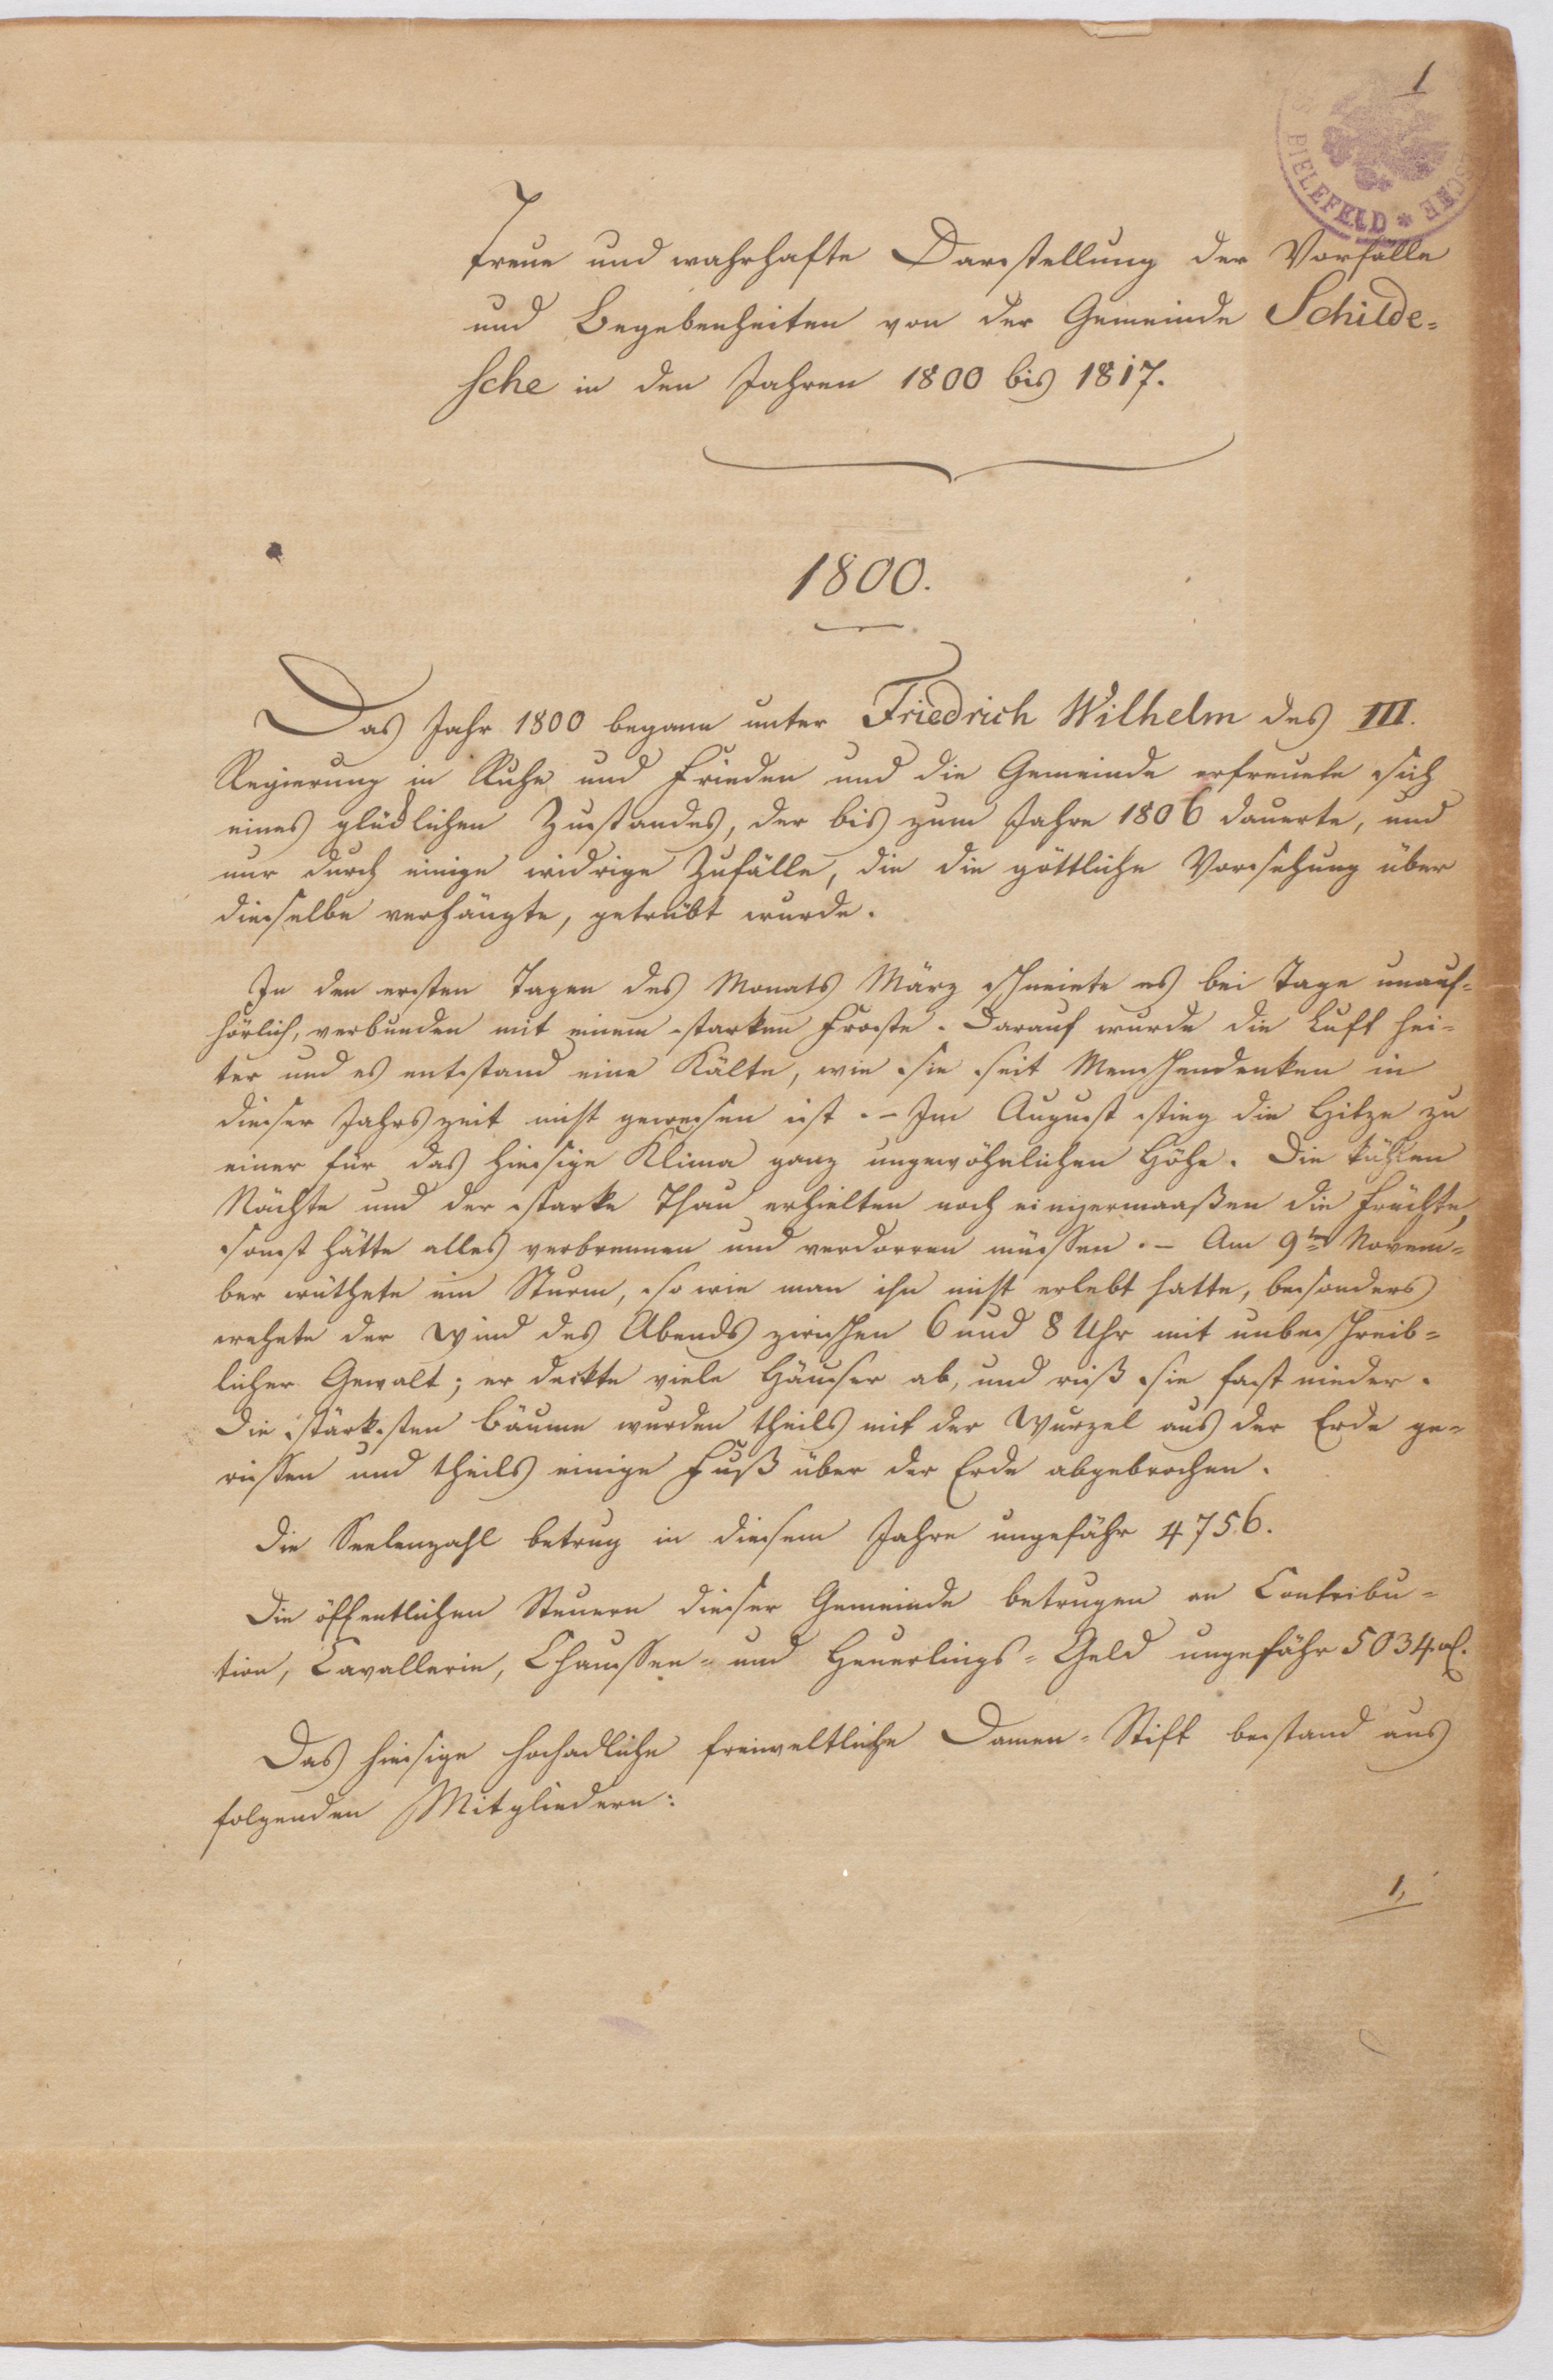 1
BIELEFELD * 
Treue und wahrhafte Darstellung der Vorfälle
und Begebenheiten von der Gemeinde Schilde=
sche in den Jahren 1800 bis 1817.
1800.
Das Jahr 1800 begann unter Friedrich Wilhelm des III.
Regierung in Ruhe und Frieden und die Gemeinde erfreuete sich
eines glücklichen Zustandes, der bis zum Jahre 1806 dauerte, und
nur durch einige widrige Zufälle, die die göttliche Vorsehung über
dieselbe verhängte, getrübt wurde.
In den ersten Tagen des Monats März schneiete es bei Tage unauf=
hörlich, verbunden mit einem starken Froste. Darauf wurde die Luft hei=
ter und es entstand eine Kälte, wie sie seit Menschendenken in
dieser Jahrszeit nicht gewesen ist. – Im August stieg die Hitze zu
einer für das hiesige Klima ganz ungewöhnlichen Höhe. Die kühlen
Nächte und der starke Thau erhielten noch einigermaaßen die Früchte,
sonst hätte alles verbrennen und verdorren müssen. – Am 9ten Novem=
ber wüthete ein Sturm, so wie man ihn nicht erlebt hatte, besonders
wehete der Wind des Abends zwischen 6 und 8 Uhr mit unbeschreib=
licher Gewalt; er deckte viele Häuser ab, und riß sie fast nieder.
Die stärksten Bäume wurden theils mit der Wurzel aus der Erde ge=
rissen und theils einige Fuß über der Erde abgebrochen.
Die Seelenzahl betrug in diesem Jahre ungefähr 4756.
Die öffentlichen Steuern dieser Gemeinde betrugen an Contribu=
tion, Cavallerie, Chaussee= und Heuerlings=Geld ungefähr 5034
Das hiesige hochadliche freiweltliche Damen=Stift bestand aus
folgenden Mitgliedern:
1,